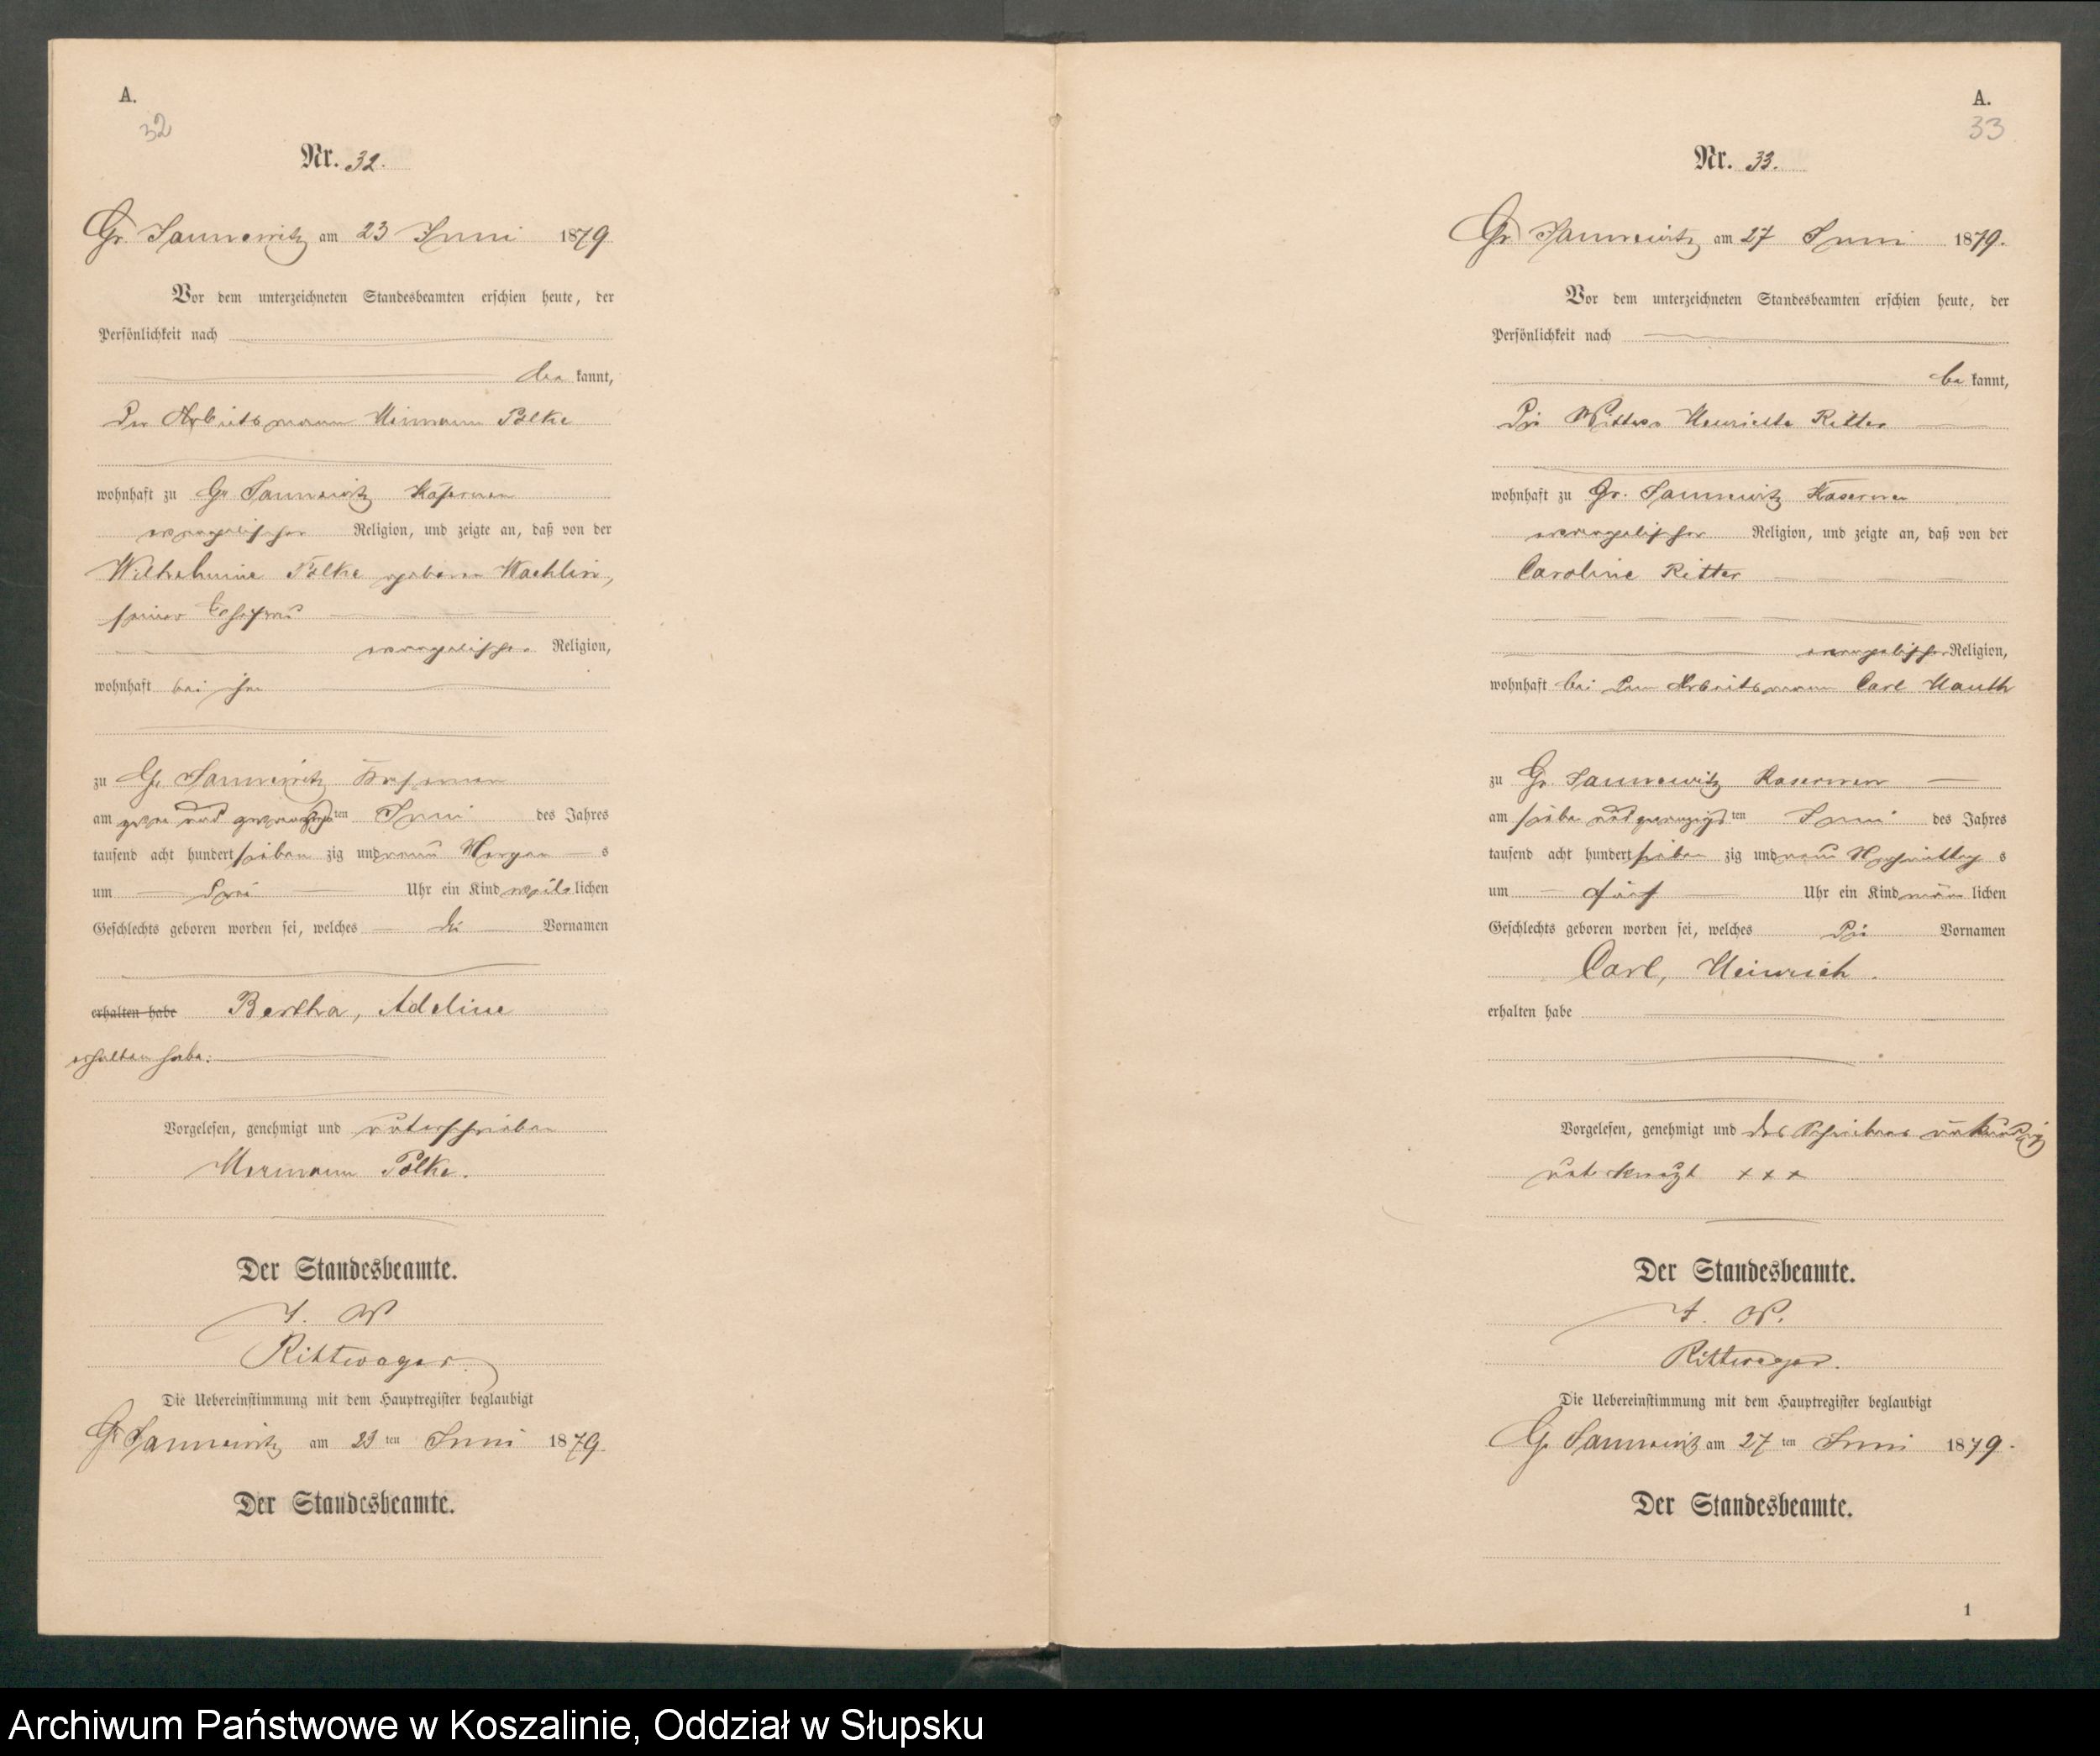 A.
32
Nr. 32.
Gr. Jannewitz am 23 Juni 1879
Vor dem unterzeichneten Standesbeamten erschien heute, der
Persönlichkeit nach
be kannt,
Der Arbeitsmann Hermann Pölke
wohnhaft zu Gr Jannewitz Kasernen
evangelischer Religion, und zeigte an, daß von der
Wilhelmine Pölke geboren Waehlin,
seiner Ehefrau
evangelischer Religion,
wohnhaft bei ihm
zu Gr Jannewitz Kasernen
am zwei und zwanzigsten Juni des Jahres
tausend acht hundert sieben zig und neun Morgen s
um Drei Uhr ein Kind weib lichen
Geschlechts geboren worden sei, welches die Vornamen
erhalten habe Bertha, Adeline
erhalten habe.
Vorgelesen, genehmigt und unterschrieben
Hermann Pölke.
Der Standesbeamte.
I. V
Rittweger.
Die Uebereinstimmung mit dem Hauptregister beglaubigt
Gr Jannewitz am 23 ten Juni 1879.
Der Standesbeamte.
A.
33
Nr. 33.
Gr Jannewitz am 27 Juni 1879.
Vor dem unterzeichneten Standesbeamten erschien heute, der
Persönlichkeit nach
be kannt,
Die Wittwe Henriette Ritter
wohnhaft zu Gr. Jannewitz Kasernen
evangelischer Religion, und zeigte an, daß von der
Caroline Ritter
evangelischer Religion,
wohnhaft bei dem Arbeitsmann Carl Hauth
zu Gr. Jannewitz Kasernen
am sieben und zwanzigs ten Juni des Jahres
tausend acht hundert sieben zig und neun Nachmittag s
um fünf Uhr ein Kind män lichen
Geschlechts geboren worden sei, welches die Vornamen
Carl, Heinrich.
erhalten habe
Vorgelesen, genehmigt und des Schreibens unkundig
unterkreuzt + + +
Der Standesbeamte.
I. V.
Rittweger.
Die Uebereinstimmung mit dem Hauptregister beglaubigt
Gr Jannewitz am 27 ten Juni 1879.
Der Standesbeamte.
1
Archiwum Państwowe w Koszalinie, Oddział w Słupsku